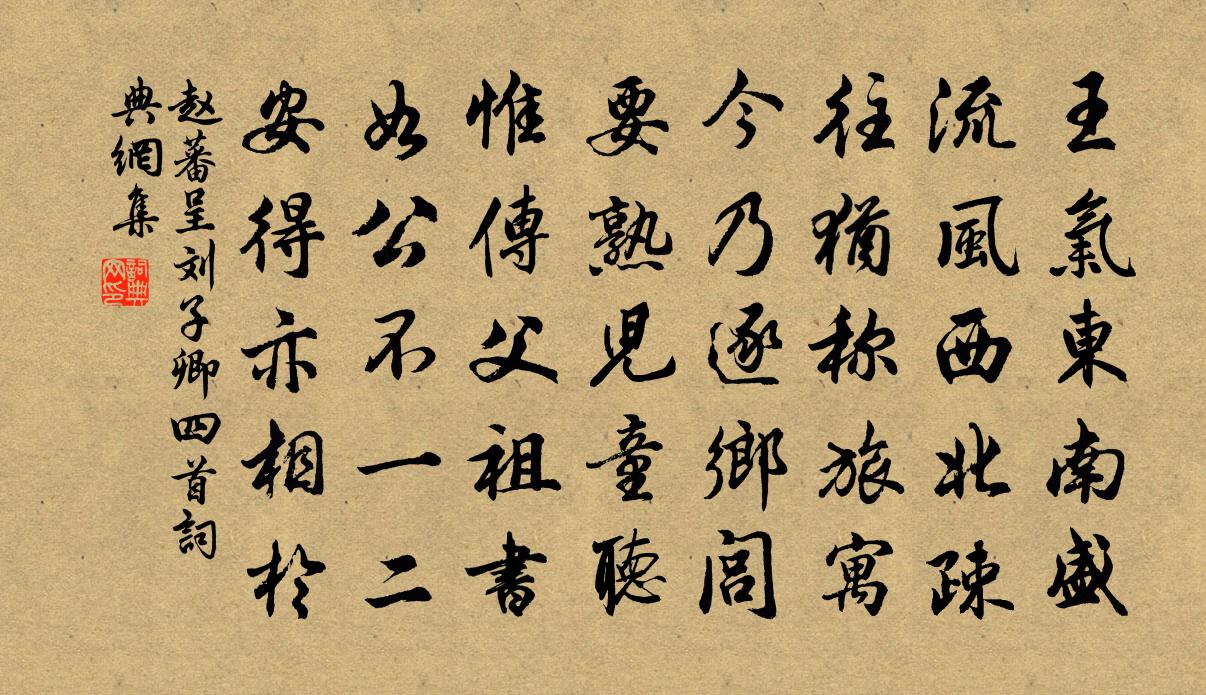 王氣東南盛
流風西北疎
往猶称旅寓
今乃逐鄉閭
要熟児童聽
惟傳父祖書
如公不一二
安得亦相於
赵蕃呈刘子卿四首詞
典網集
詞典
网印